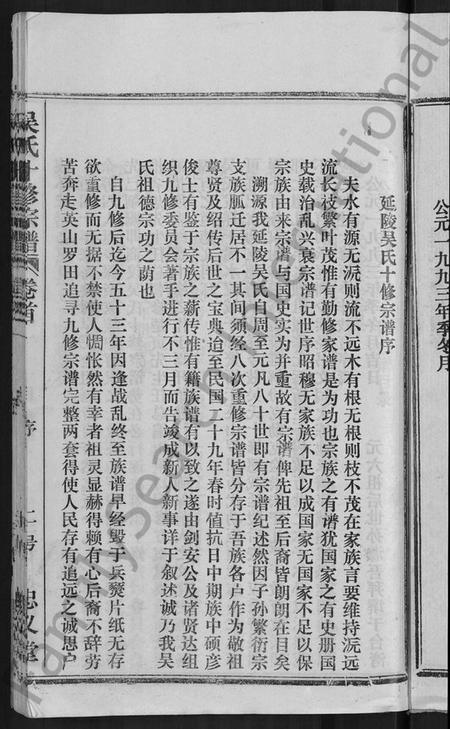 公元一九九三年季冬月
延陵吴氏十修宗谱序
夫水有源无派则流不远木有根无根则枝不茂在家族言要维持流远
流长枝繁叶茂惟有勤修家谱是为功也宗族之有谱犹国家之有史册国
史载治乱兴衰宗谱记世序昭穆无家族不足以成国家无国家不足以保
宗族由来宗谱与国史实为并重故有宗谱俾先祖至后裔皆朗朗在目矣
溯源我延陵吴氏自周至元凡八十世即有宗谱纪述然因子孙繁衍宗
支族胍迁居不一其间须经八次重修宗谱皆分存于吾族各户作为敬祖
尊贤及绍传后世之宝典迨至民国二十九年春时值抗日中期族中硕彦
俊士有鉴于宗族之薪传惟有籍族谱有以致之遂由剑安公及诸贤达组
织九修委员会著手进行不三月而告竣成新人新事详于叙述诚乃我吴
氏祖德宗功之荫也
自九修后迄今五十三年因逢战乱终至族谱早经毁于兵燹片纸无存
欲重修而无据不禁使人惆怅然有幸者祖灵显赫得赖有心后裔不辞劳
苦奔走英山罗田追寻九修宗谱完整两套得使人民存有追远之诚恩户
吴氏十修宗谱 卷首 序 二号 忠义堂
familysearch international